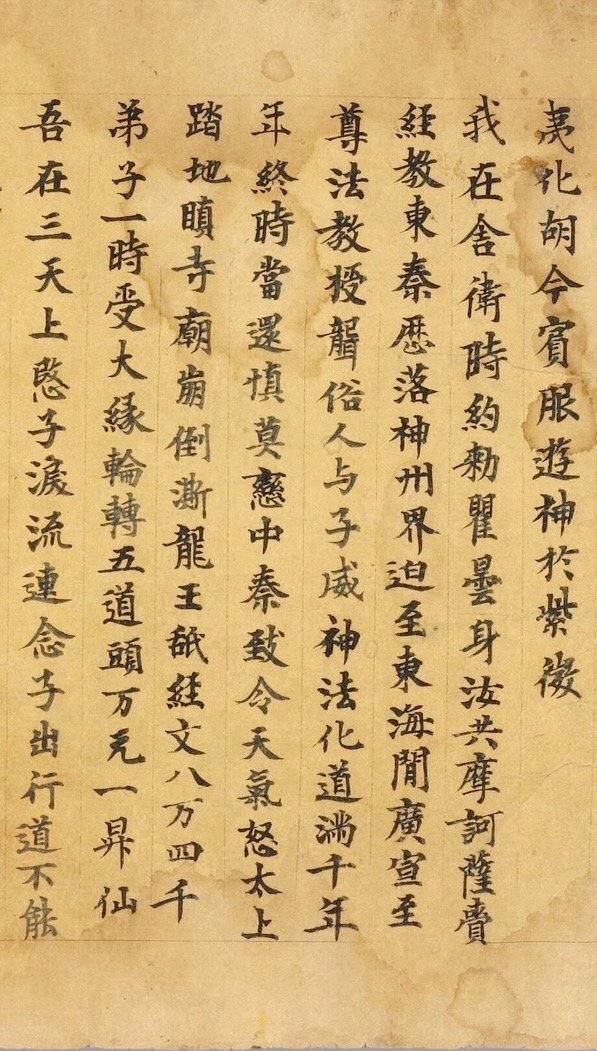 夷化胡今賓服遊神於紫微
我在舍衛時約勑瞿曇身汝共摩訶薩賷
經教東秦歷落神州界迫至東海間廣宣至
尊法教授聾俗人与子威神法化道満千年
年終時當還慎莫戀中秦致令天氣怒太上
踏地瞋寺廟崩倒澌龍王舐経文八万四千
弟子一時受大緣輪轉五道頭万无一昇仙
吾在三天上愍子淚流連念子出行道不能